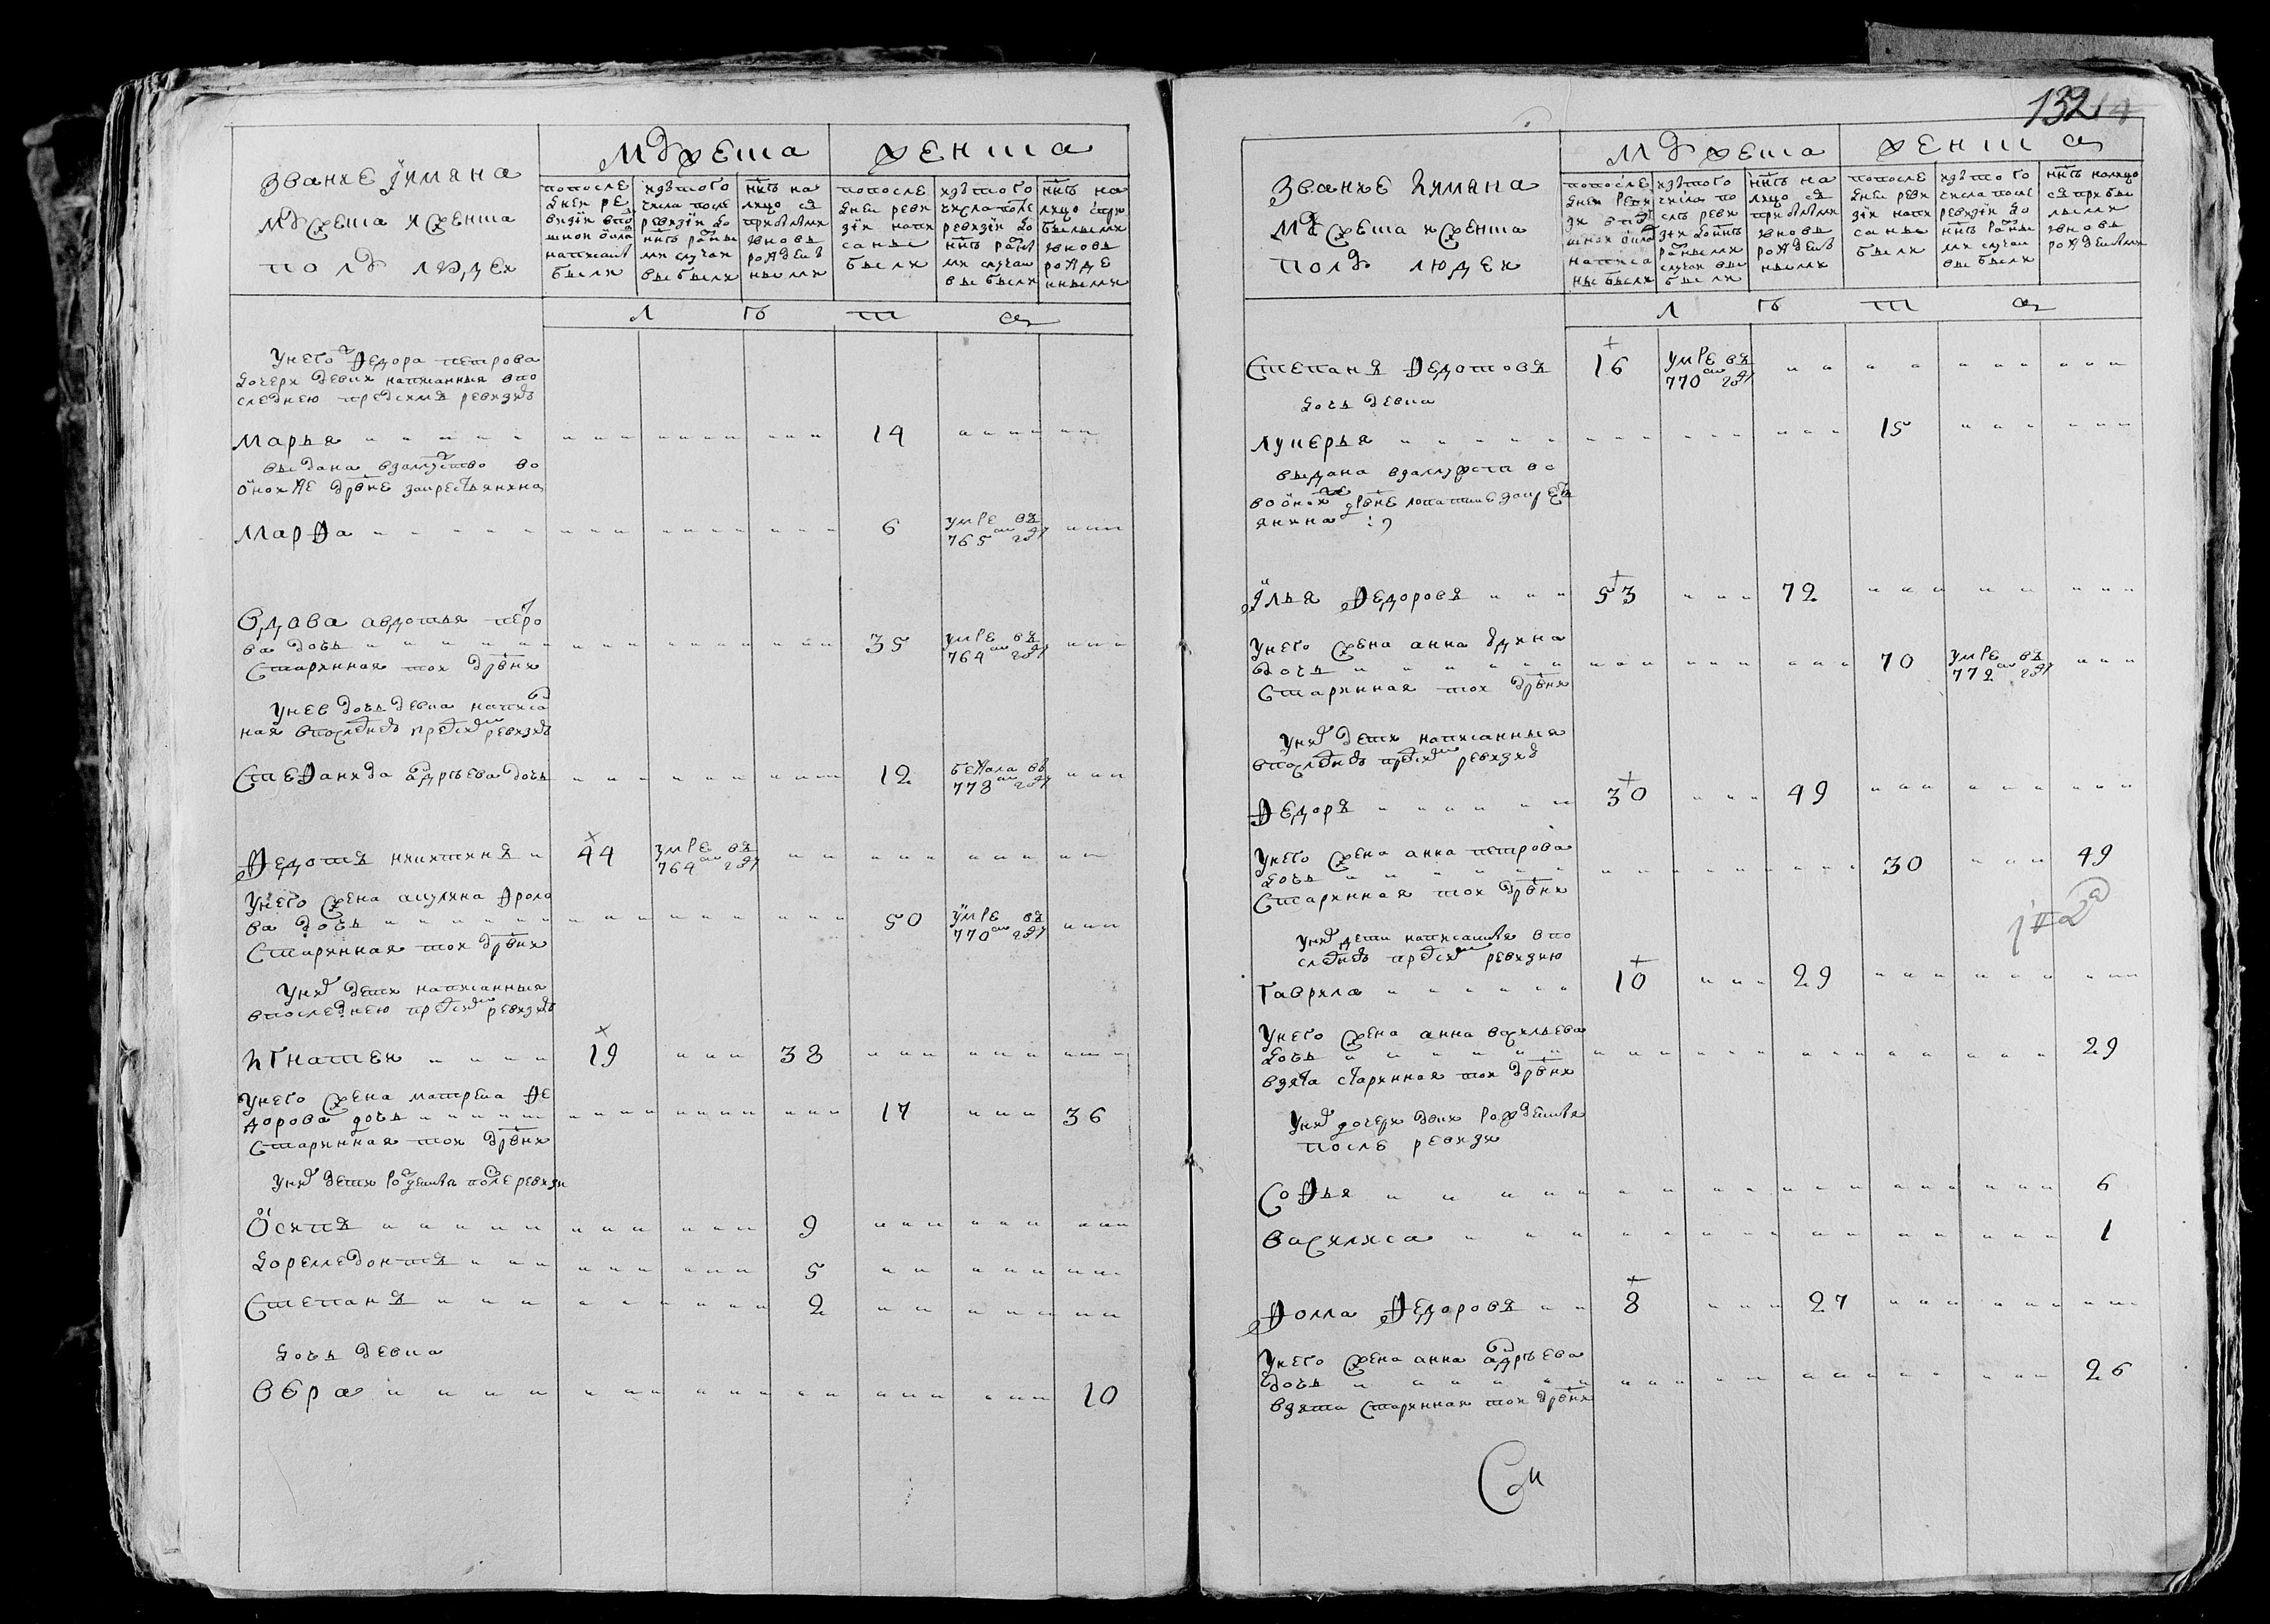 132
звание и имяна
мужеска и женска
полу людей
Мужеска
женска
попосле
дней ре
визии впо
написаны
были
изътого
числа после
ревизии до
ныне разны
ми случаи
выбыли
ныне на
лицо съ
прибылыми
вновь
рожденъ
ными
попосле
дней реви
зии напи
саны
были
изътого
числа после
ревизии до
ныне разны
ми случаи
выбыли
ныне на
лицо спри
былыми
вновь
рожде
нными
Л Ѣ Т А
Унего Федора петрова
дочери девки написанныя впо
следнею пред симъ ревизию
Марья 14
выдана взамужство во
оной же дрвне закрестьянина
Марфа 6 умре въ 765м году
Вдова авдотья петро
ва дочь 35 умре въ 764м году
Старинная той дрвни
Унев дочь девка написа
ная впоследней пред симъ ревизию
Стефанида андреева дочь 12 бежала въ 778м году
Федотъ никитинъ 44 умре въ 764м году
Унего жена акулина фроло
ва дочь 50 умре въ 770м году
Старинная той дрвни
Уних дети написанныя
впоследнею пред симъ ревизию
игнатей 19 38
Унего жена матрена фе
дорова дочь 17 36
Старинная той дрвни
Уних дети рожденныя после ревизии
Осипъ 9
доремедонтъ 5
Степанъ 2
дочь девка
вера 10
звание иимяна
мужеска иженска
полу людей
Мужеска
женска
попосле
дней реви
зи впо
написа
ны были
изътого
числа по
сле реви
зии доныне
разными
случаи вы
были
ныне на
лицо съ
прибылыми
вновь
рожден
ными
попосле
дней реви
зии напи
саны
были
изътого
числа после
ревизии до
ныне разны
ми случаи
выбыли
ныне налицо
съ прибы
лыми
вновь
рожденными
Л Ѣ Т А
Степанъ Федотовъ 16 умре въ 770м году
дочь девка
лукерья 15
выдана взамужство во
воной же дрвне лопатине закресть
янина :)
Илья Федоровъ 53 72
Унего жена анна
дочь 70 умре въ 772м году
Старинная той дрвни
Уних дети написанныя
впоследней пред симъ ревизию
Федоръ 30 49
Унего жена анна петрова
дочь 30 49
Старинная той дрвни
Уних дети написаныя впо
следней пред симъ ревизию
Гаврила 10 29
Унего жена анна васильева
дочь 29
взята старинная той дрвни
Уних дочери девки рожденыя
после ревизи
Софья 6
василиса 1
Фома Федоровъ 8 27
Унего жена анна андреева
дочь 26
взята Старинная той дрвни